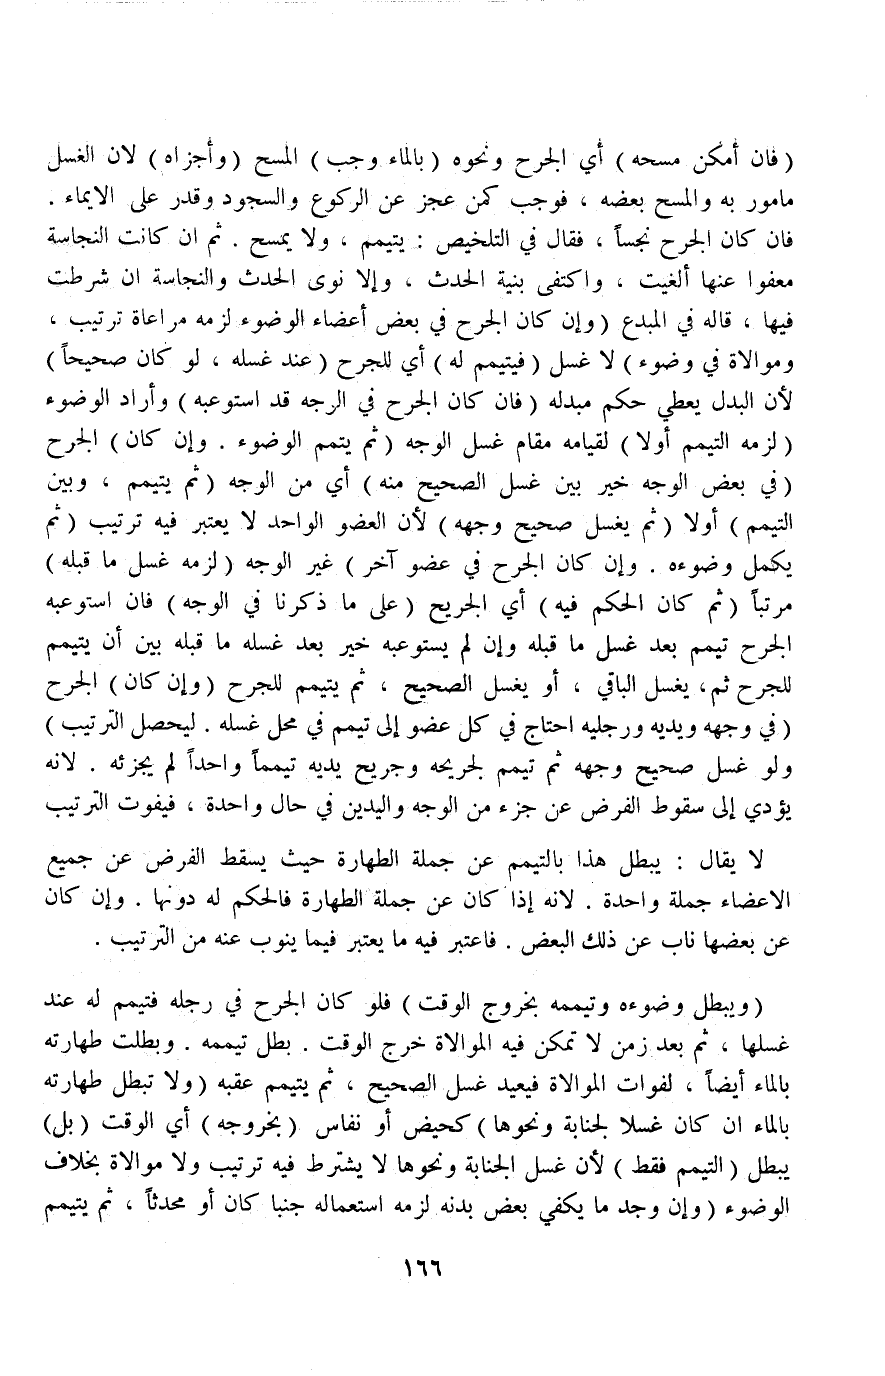 ( فان أمكن مسحه ) أي الجرح ونحوه ( بالماء وجب ) المسح ( وأجزاه ) لان الغسل
مامور به والمسح بعضه ، فوجب كمن عجز عن الركوع والسجود وقدر على الايماء .
فان كان الجرح نجساً ، فقال في التلخيص : يتيمم ، ولا يمسح . ثم ان كانت النجاسة
معفوا عنها ألغيت ، واكتفى بنية الحدث ، وإلا نوى الحدث والنجاسة ان شرطت
فيها ، قاله في المبدع ( وإن كان الجرح في بعض أعضاء الوضوء لزمه مراعاة ترتيب ،
وموالاة في وضوء ) لا غسل ( فيتيمم له ) أي للجرح ( عند غسله ، لو كان صحيحاً )
لأن البدل يعطي حكم مبدله ( فان كان الجرح في الرجه قد استوعبه ) وأراد الوضوء
( لزمه التيمم أولا ) لقيامه مقام غسل الوجه ( ثم يتمم الوضوء . وإن كان ) الجرح
( في بعض الوجه خير بين غسل الصحيح منه ) أي من الوجه ( ثم يتيمم ، وبين
التيمم ) أولا ( ثم يغسل صحيح وجهه ) لأن العضو الواحد لا يعتبر فيه ترتيب ( ثم
يكمل وضوءه . وإن كان الجرح في عضو آخر ) غير الوجه ( لزمه غسل ما قبله )
مرتباً ( ثم كان الحكم فيه ) أي الجريح ( على ما ذكرنا في الوجه ) فان استوعبه
الجرح تيمم بعد غسل ما قبله وإن لم يستوعبه خير بعد غسله ما قبله بين أن يتيمم
للجرح ثم، يغسل الباقي ، أو يغسل الصحيح ، ثم يتيمم للجرح ( وإن كان ) الجرح
( في وجهه ويديه ورجليه احتاج في كل عضو إلى تيمم في محل غسله . ليحصل الترتيب )
ولو غسل صحيح وجهه ثم تيمم لجريحه وجريح يديه تيمماً واحداً لم يجزئه . لانه
يؤدي إلى سقوط الفرض عن جزء من الوجه واليدين في حال واحدة ، فيفوت الترتيب
لا يقال : يبطل هذا بالتيمم عن جملة الطهارة حيث يسقط الفرض عن جميع
الاعضاء جملة واحدة . لانه إذا كان عن جملة الطهارة فالحكم له دونها . وإن كان
عن بعضها ناب عن ذلك البعض . فاعتبر فيه ما يعتبر فيما ينوب عنه من الترتيب .
( ويبطل وضوءه وتيممه بخروج الوقت ) فلو كان الجرح في رجله فتيمم له عند
غسلها ، ثم بعد زمن لا تمكن فيه الموالاة خرج الوقت . بطل تيممه . وبطلت طهارته
بالماء أيضاً ، لفوات الموالاة فيعيد غسل الصحيح ، ثم يتيمم عقبه ( ولا تبطل طهارته
بالماء ان كان غسلا لجنابة ونحوها ) كحيض أو نفاس ( بخروجه ) أي الوقت ( بل )
يبطل ( التيمم فقط ) لأن غسل الجنابة ونحوها لا يشترط فيه ترتيب ولا موالاة بخلاف
الوضوء ( وإن وجد ما يكفي بعض بدنه لزمه استعماله جنبا كان أو محدثاً ، ثم يتيمم
١٦٦